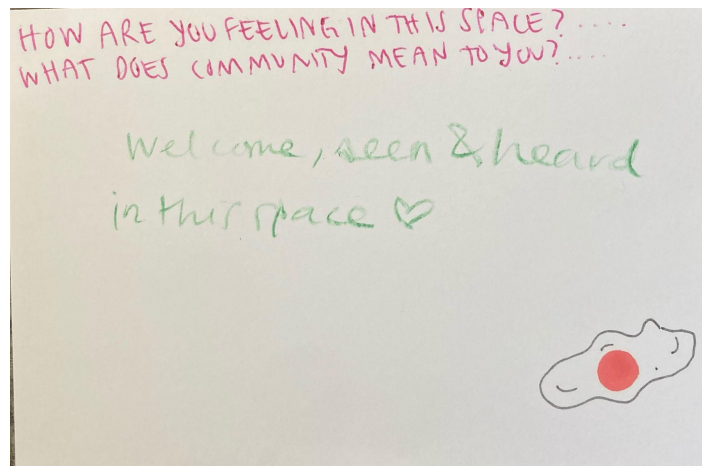 HOW ARE YOU FEELING IN THIS SPACE? ....
WHAT DOES COMMUNITY MEAN TO YOU? ....
Welcome, seen & heard
in this space ♡